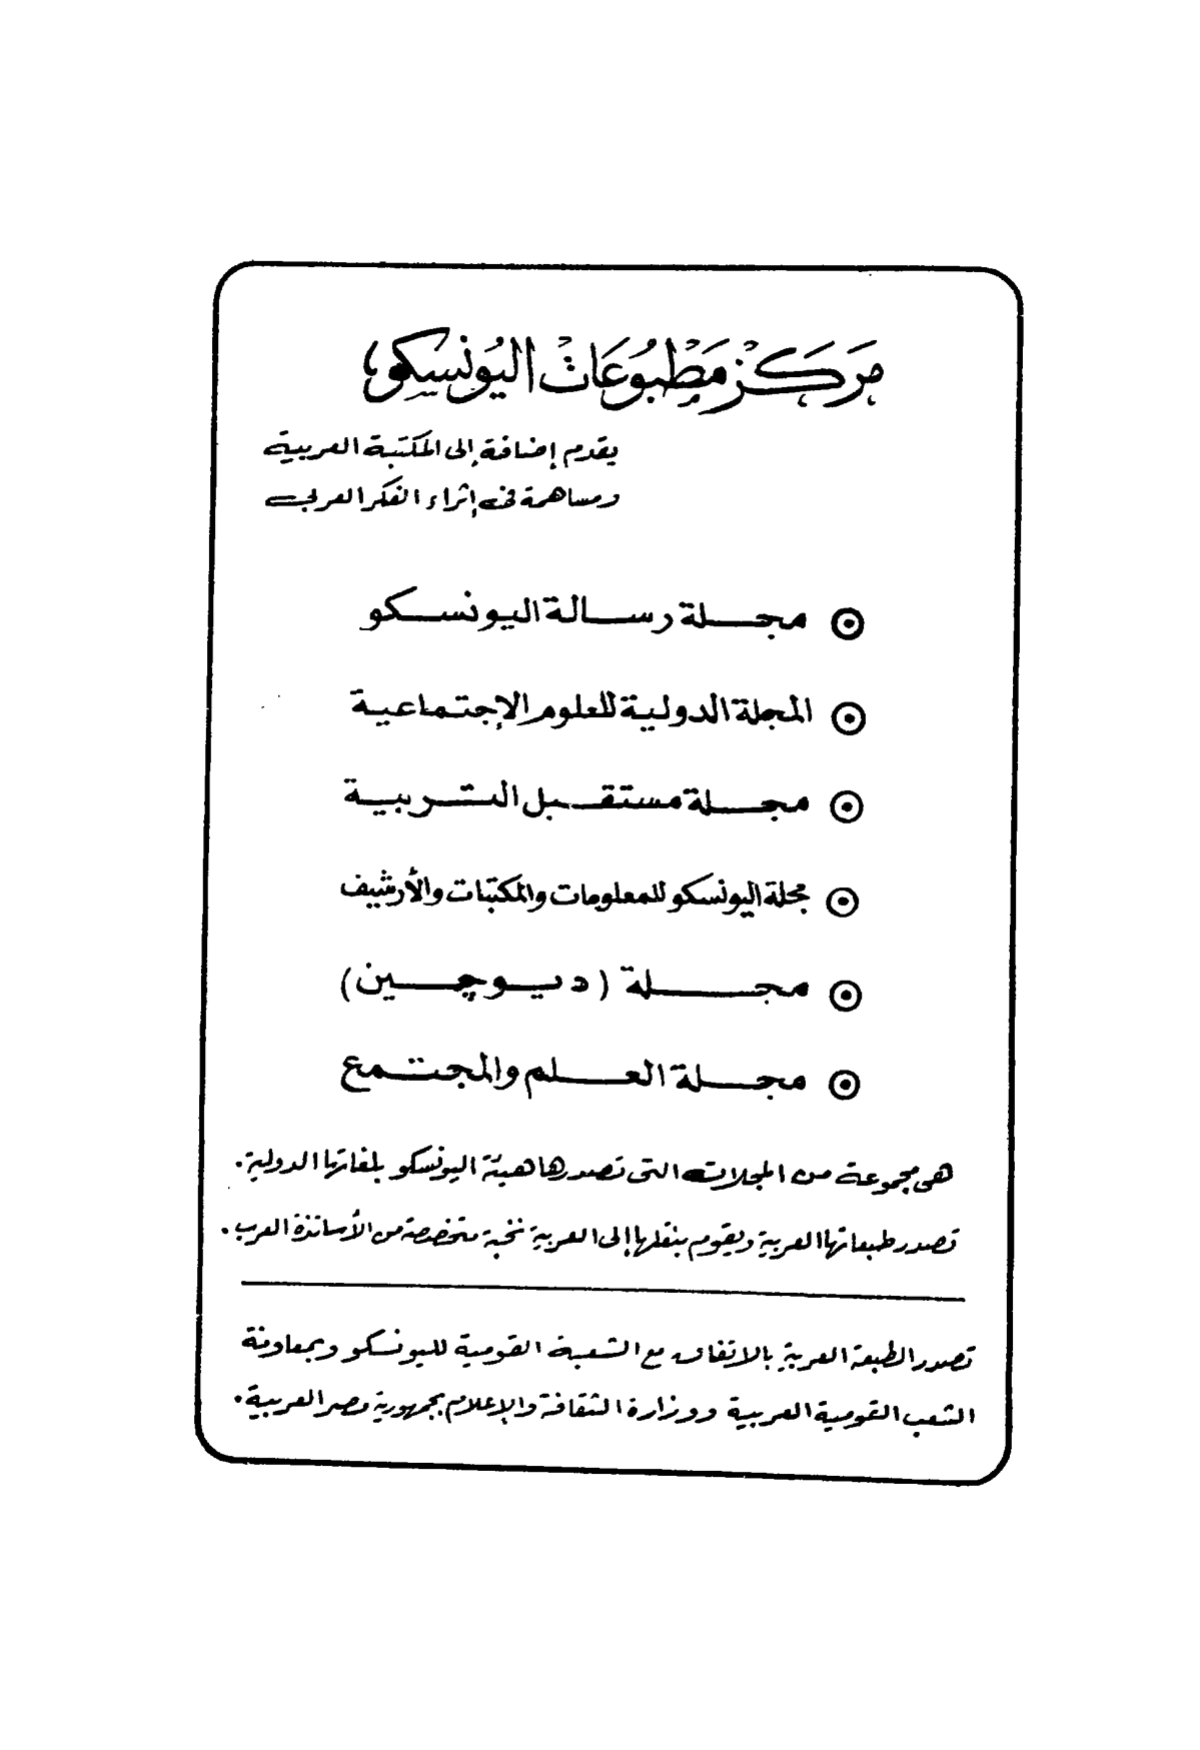 مركز مطبوعات اليونسكو
يقدم إضافة إلى المكتبة العربية
ومساهمة في إثراء الفكر العربي
مجلة رسالة اليونسكو
المجلة الدولية للعلوم الإجتماعية
مجلة مستقبل التربية
مجلة اليونسكو للمعلومات والمكتبات والأرشيف
مجلة (ديوچين)
مجلة العلم والمجتمع
هى مجموعة من المجلات التى تصدرها هيئة اليونسكو بلغاتها الدولية.
تصدر طبعاتها العربية ويقوم بنقلها إلى العربية نخبة متخصصة من الأساتذة العرب.
تصدر الطبعة العربية بالاتفاق مع الشعبة القومية لليونسكو وبمعاونة
الشعب القومية العربية ووزارة الثقافة والإعلام بجمهورية مصر العربية.